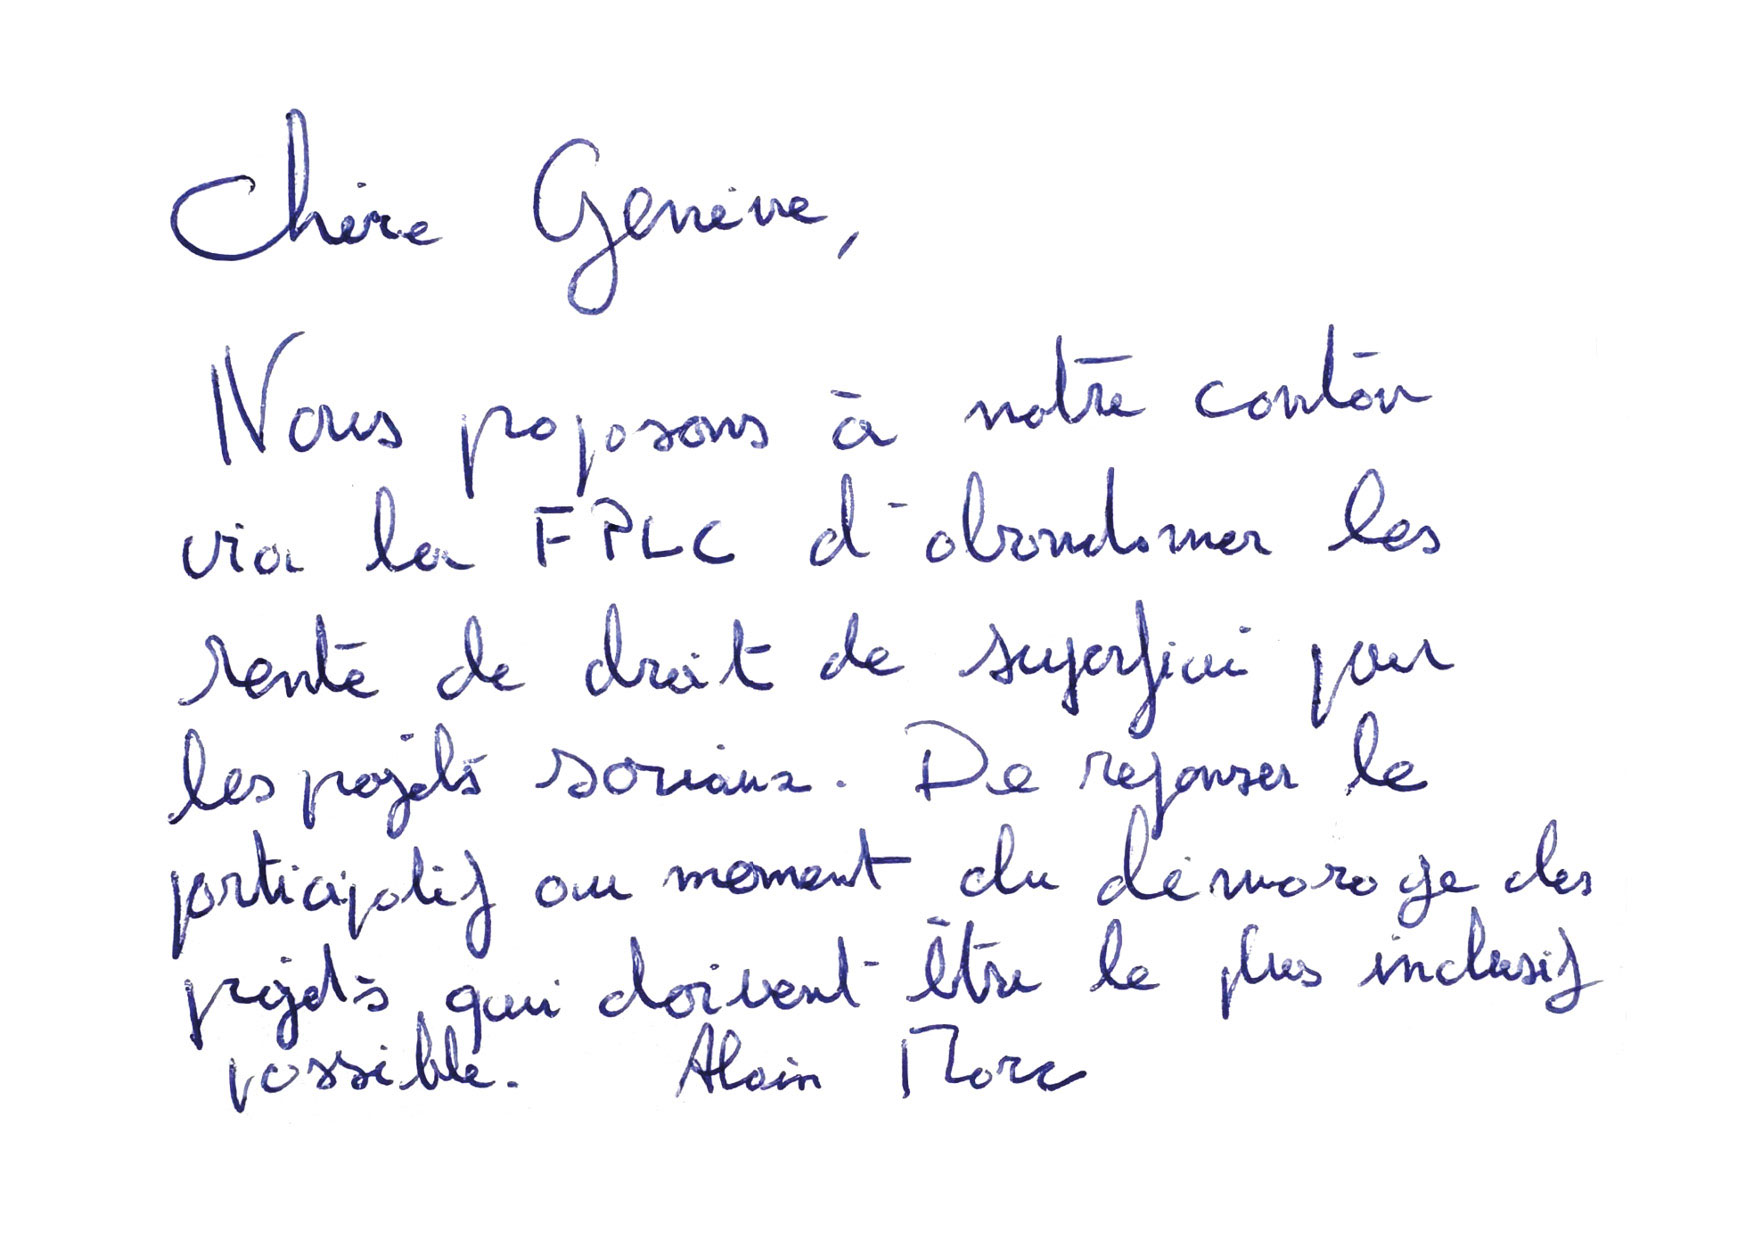 Chère Genève,
Nous poposons à notre canton
via la FPLC d'abandonner les
rente de droit de superficie pour
les projets sociaux. De repenser le
participatif au moment du démarage des
projets qui doivent être le plus inclusif
possible. Alain Marc